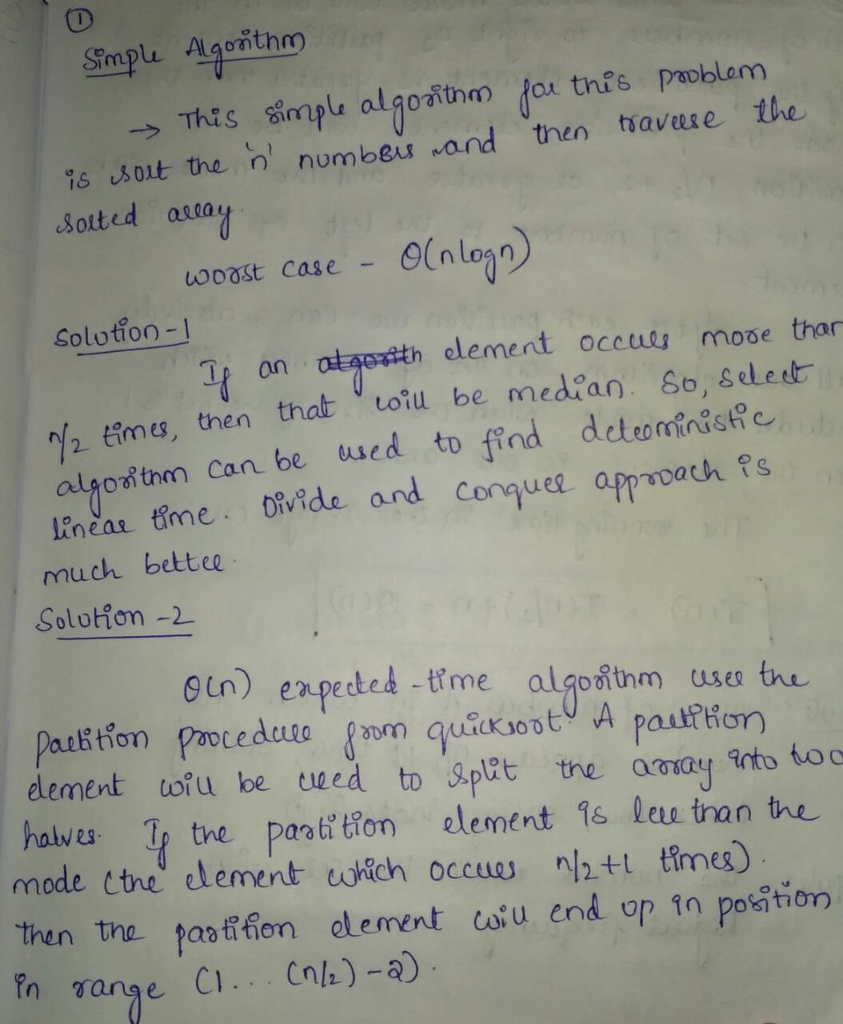 ①
Simple Algorithm
→ This simple algorithm for this problem
is sort the 'n' numbers and then traverse the
sorted array.
worst case - Θ(nlogn)
Solution-1
If an algorith element occurs more than
n/2 times, then that will be median. So, select
algorithm can be used to find deterministic
linear time. Divide and conquer approach is
much better.
Solution -2
Θ(n) expected -time algorithm uses the
partition procedure from quicksort. A partition
element will be used to split the array into two
halves. If the partition element is less than the
mode (the element which occurs n/2+1 times).
then the partition element will end up in position
in range (1... (n/2)-2).